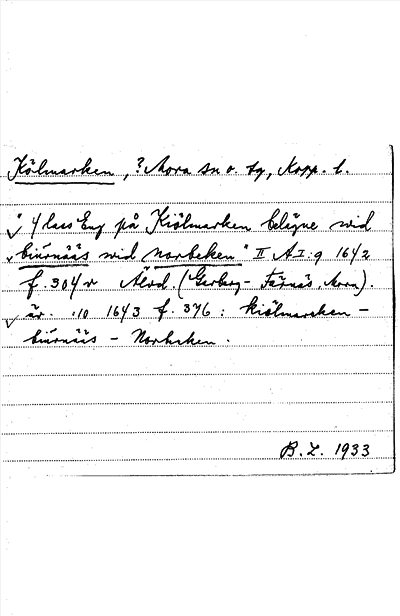 Kölmarken, ? Mora sn o. tg, Kopp. l.
"j 4 lass Eng på Kiölmarken belägne wid
biurnääs wid Norbeken" II A I:9 1642
f. 304 v Älvd. (Gerberg - Färnäs, Mora).
är. :10 1643 f. 376 : kiölmarcken -
biurnääs - Norbeken.
B. L. 1933